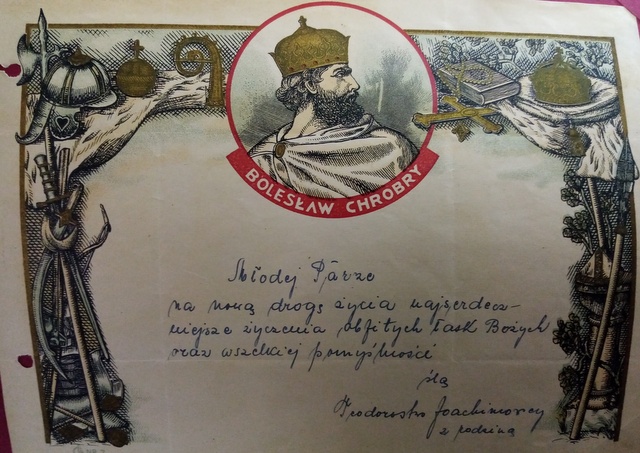 BOLESŁAW CHROBRY
Młodej Parze
na nową drogę życia najserdecz-
niejsze życzenia obfitych łask Bożych
oraz wszelkiej pomyślności
ślą
Joachimowcy
z rodziną